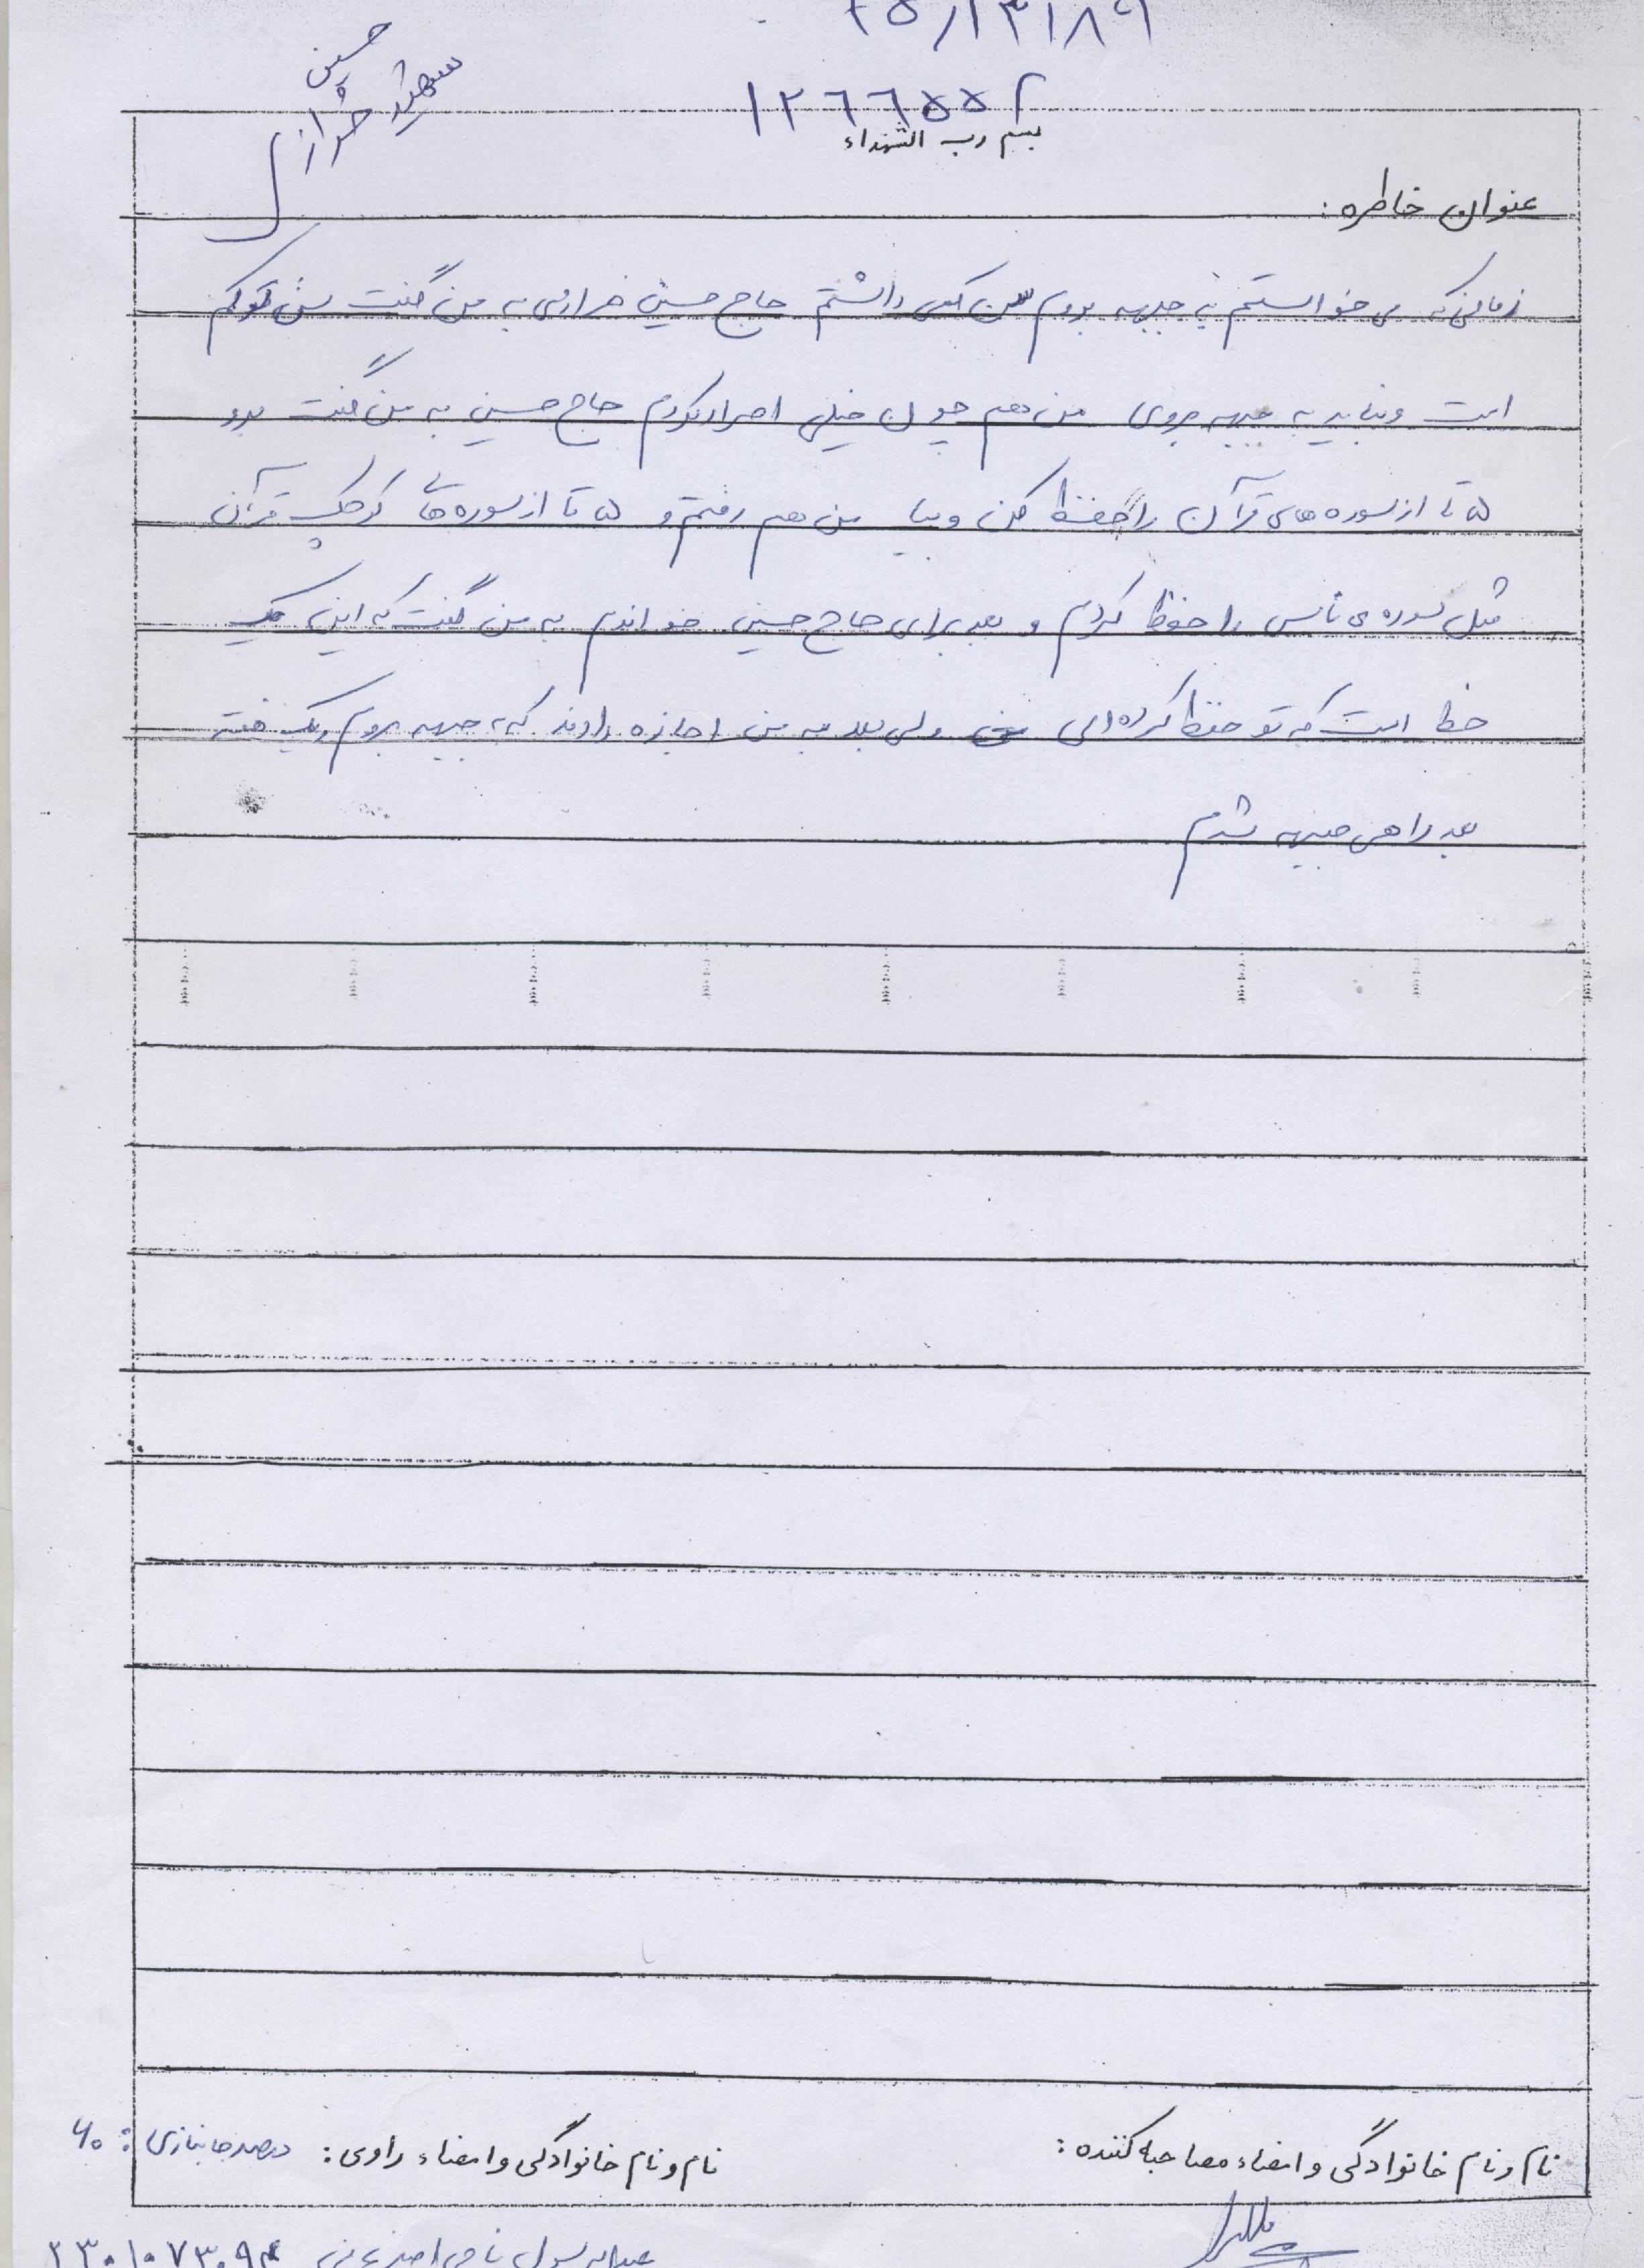 ۲۵/۱۳۱۸۹
حسین
شهید خرازی
۱۲۶۶۵۵۲
بسم رب الشهداء
عنوان خاطره:
زمانی که می خواستم به جبهه بروم سن کمی داشتم حاج حسین خرازی به من گفت سن تو کم
است و نباید به جبهه بروی من هم چون خیلی اصرار کردم حاج حسین به من گفت برو
۵ تا از سوره های قرآن را حفظ کن و بیا من هم رفتم و ۵ تا از سوره های کوچک قرآن
مثل سوره ی ناس را حفظ کردم و بعد برای حاج حسین خواندم به من گفت که این یک
خط است که تو حفظ کرده ای ولی بعد به من اجازه دادند که به جبهه بروم و یک هفته
بعد راهی جبهه شدم
نام و نام خانوادگی و امضاء مصاحبه کننده:
نام و نام خانوادگی و امضاء راوی: درصد جانبازی: ۶۰
عبدالرسول